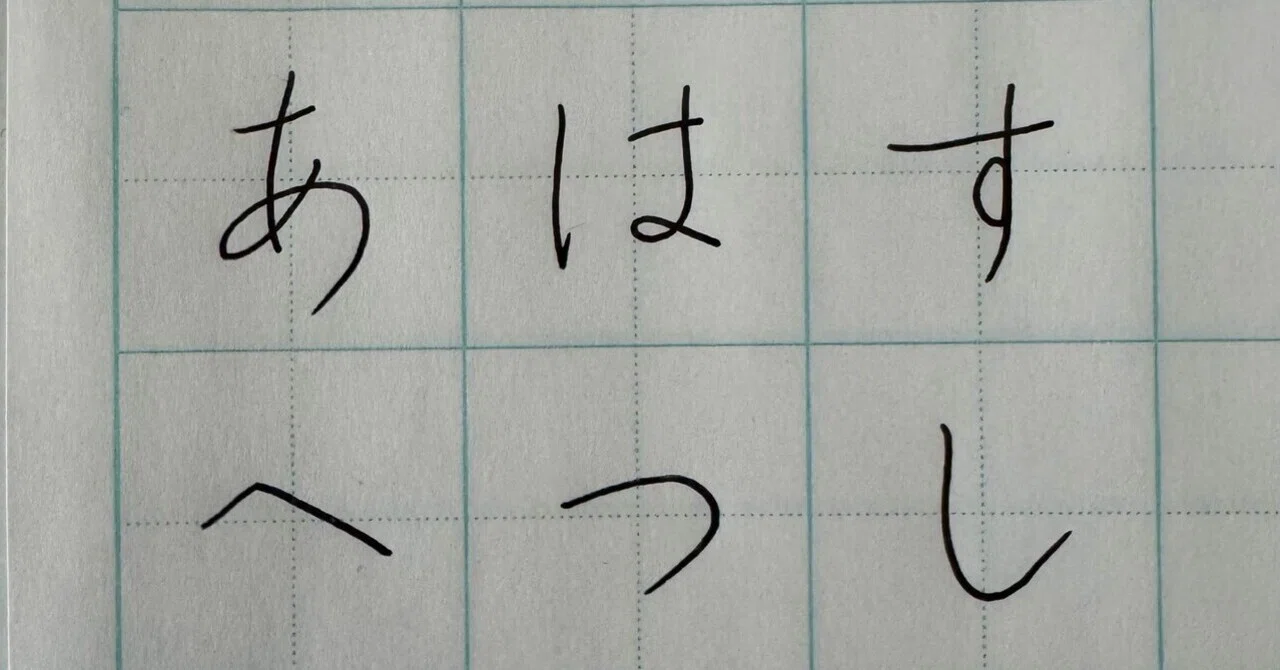 あはす
へつし